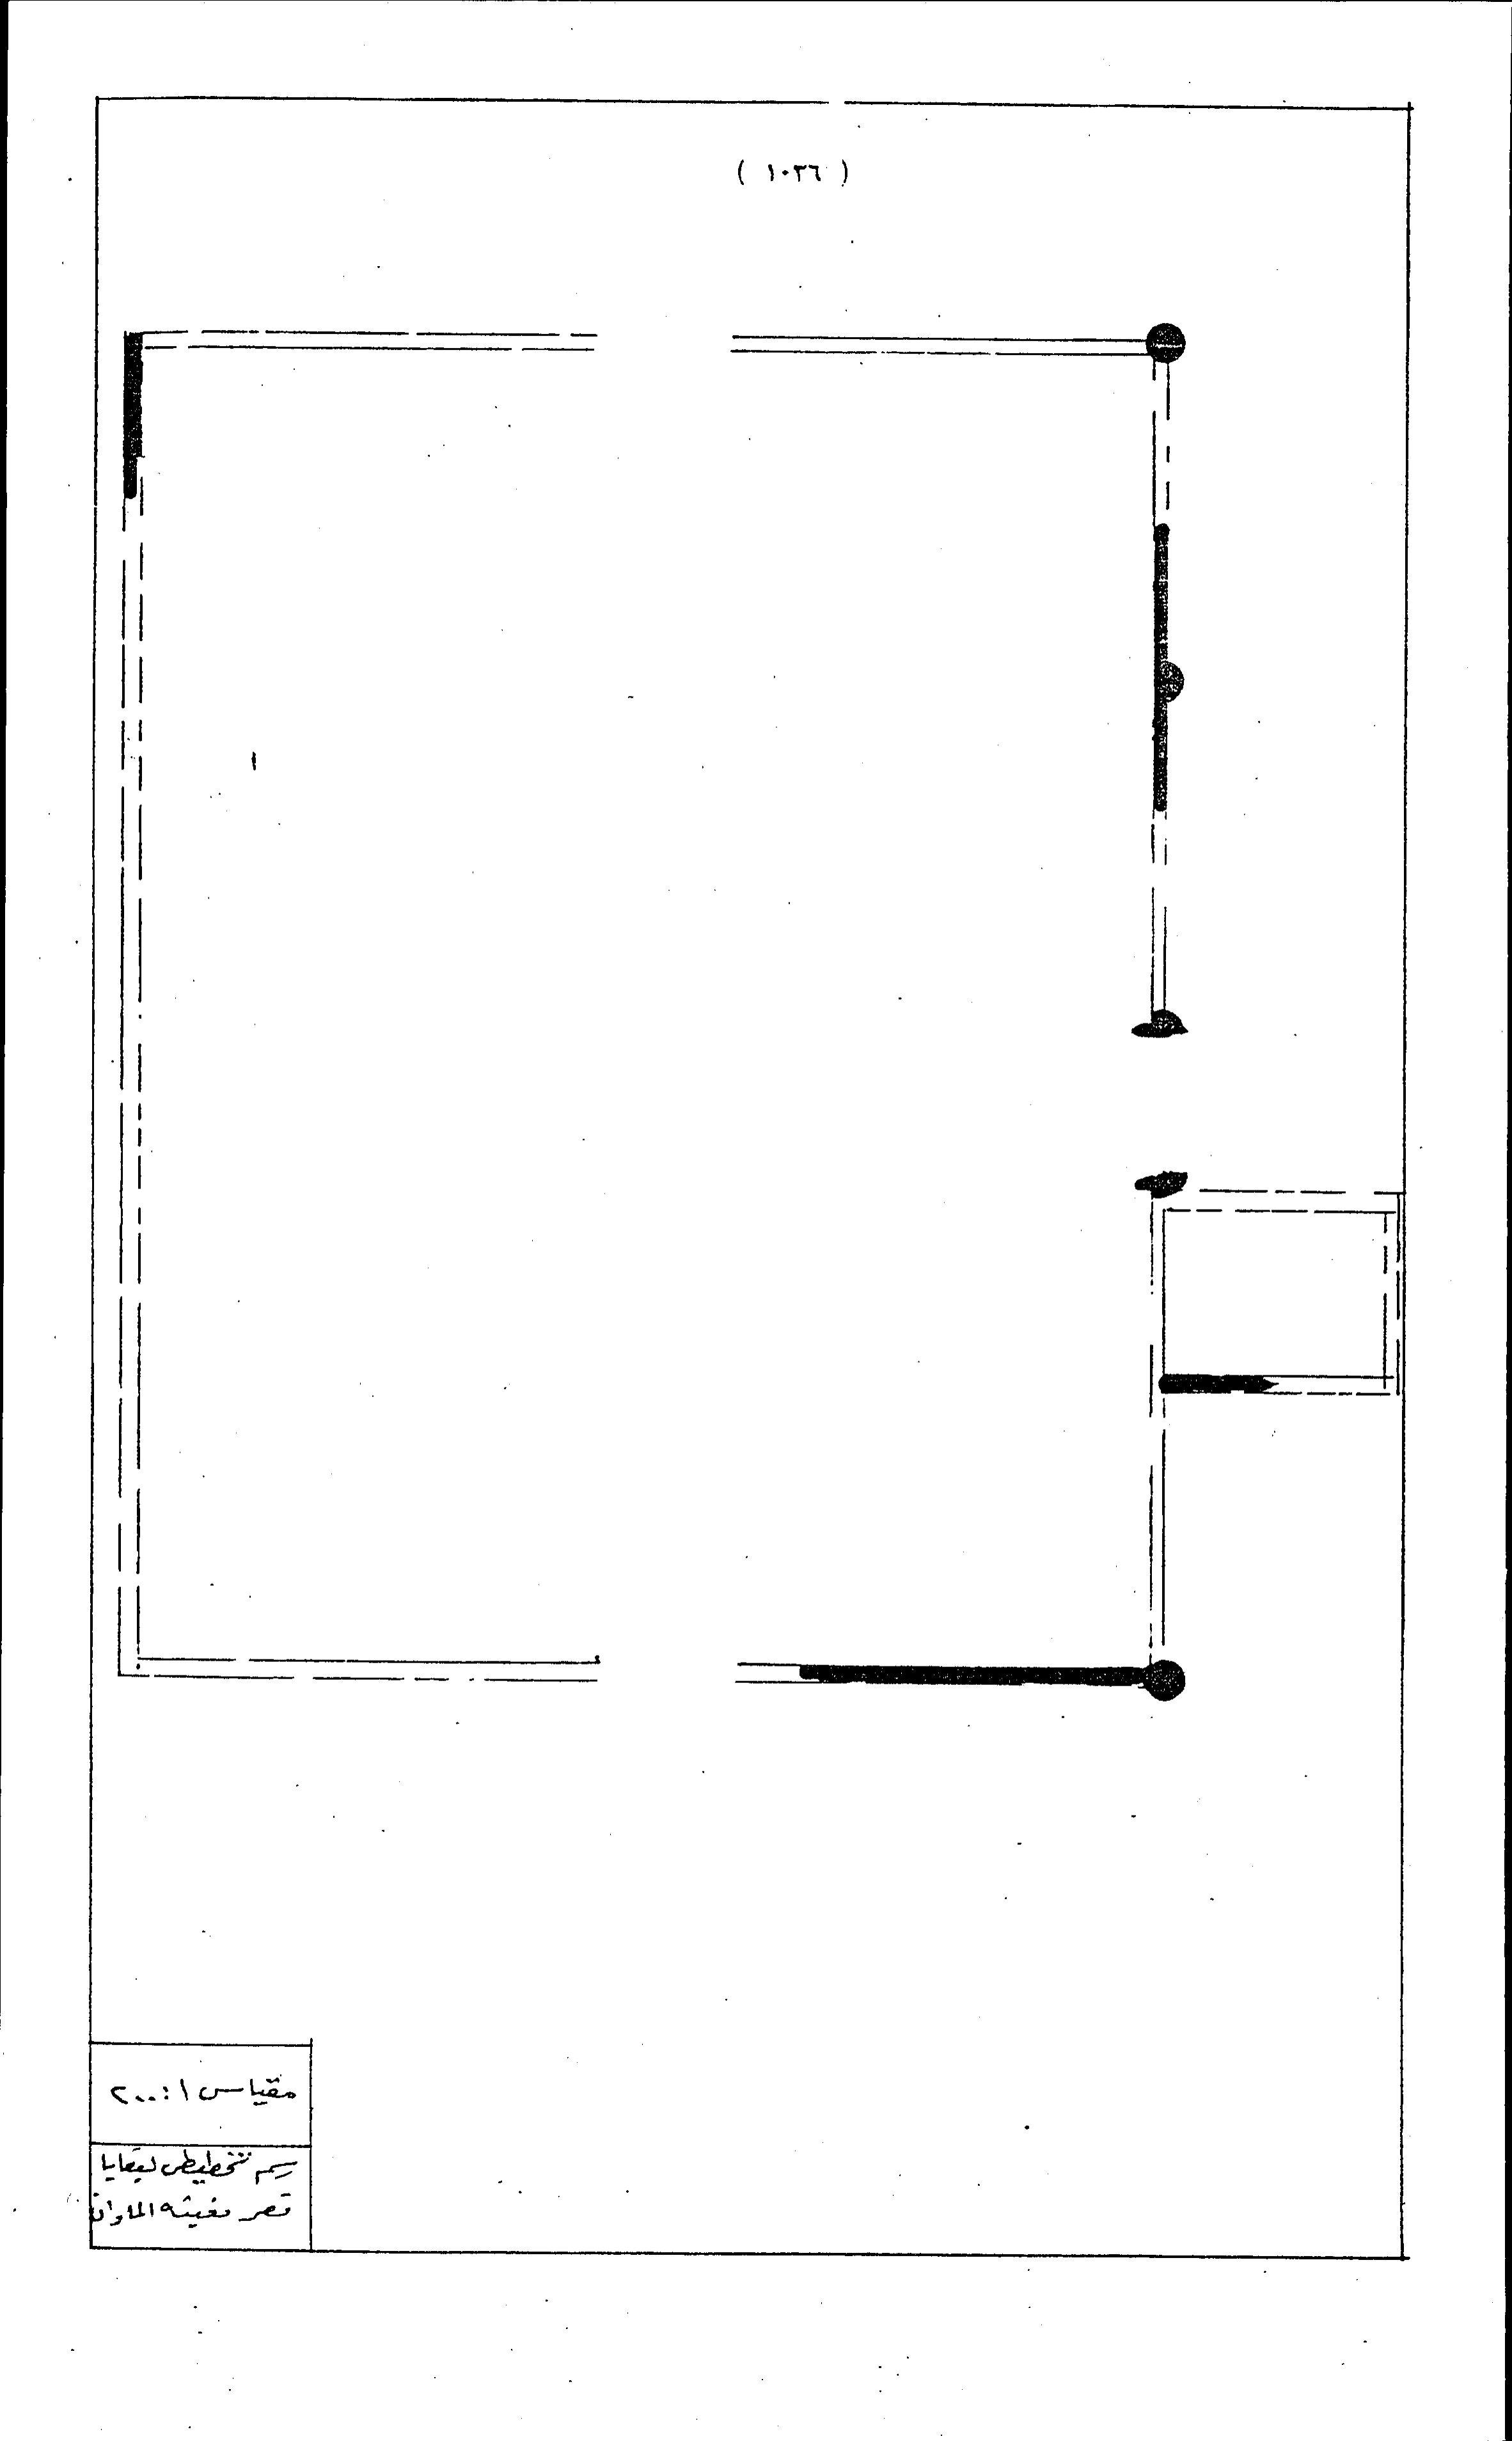 ( ١٠٣٦ )
مقياس ١:٢٠٠
رسم تخطيطي لبقايا
قصر مغيثه الماوان